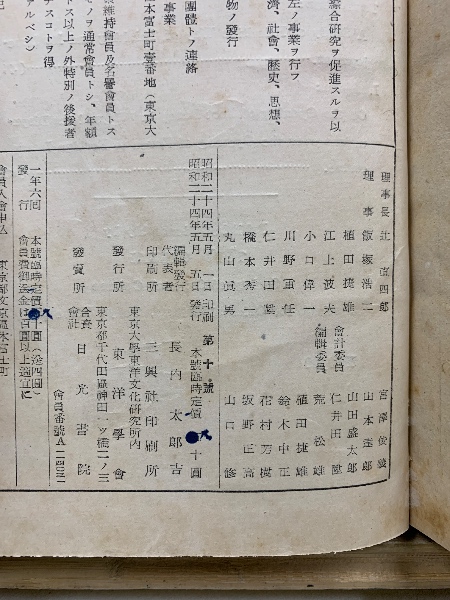 綜合研究ヲ促進スルヲ以
左ノ事業ヲ行フ
濟、社會、歷史、思想、
物ノ發行
團體トノ連絡
事業
本富士町壹番地（東京大
維持會員及名譽會員トス
モノヲ通常會員トシ、年額
トス以上ノ外特別ノ後援者
チスコトヲ得
アルベシ）
理事長 辻直四郎
理事 飯塚浩二
植田捷雄
江上波夫
小口偉一
川野重任
仁井田陞
橋本秀一
丸山眞男
宮澤俊義
山本達郎
山田盛太郎
會計委員 仁井田陞
編輯委員 荒松雄
植田捷雄
鈴木中正
花村芳樹
坂野正高
山口修
昭和二十四年五月一日印刷
昭和二十四年五月五日發行
第十號
本號臨時定價 十圓
編輯發行代表者 長內太郎吉
印刷所 三興社印刷所
東京大學東洋文化硏究所內
發行所 東洋學會
東京都千代田區神田一ツ橋二ノ三
發賣所 合資會社 日光書院
會員番號A一二四三二
一年六回發行 本號臨時定價 十圓（送四圓）
會員費御送金は百圓以上適宜に
會員入會申込 東京都文京區本富士町